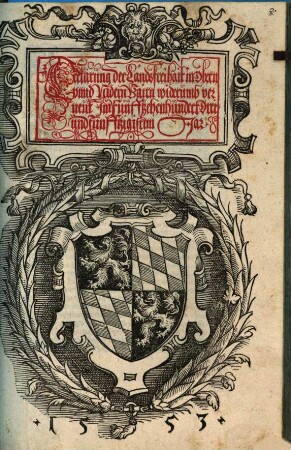 Erclärung der Landsfreihait in Obern
unnd Nidern Bayrn widerumb ver
neut Im fünfftzehenhundert Drey
undfünfftzigistem Jar
1553